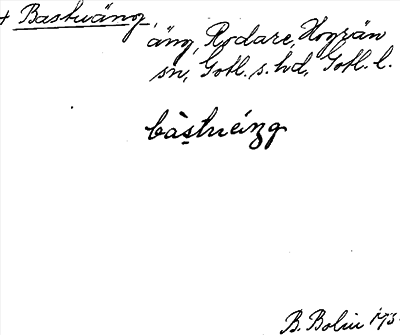 + Bastuäng,
äng, Rodare, Hogrän
sn, Gotl. s. hd, Gotl. l.
bàstuéng
B. Bolin 193